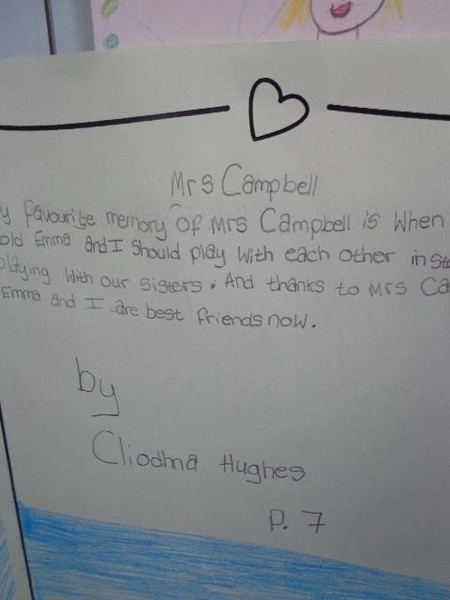 Mrs Campbell
y favourite memory of Mrs Campbell is when
old Emma and I should play with each other in ste
playing with our sisters. And thanks to Mrs Ca
Emma and I are best friends now.
by
Cliodhna Hughes
P. 7